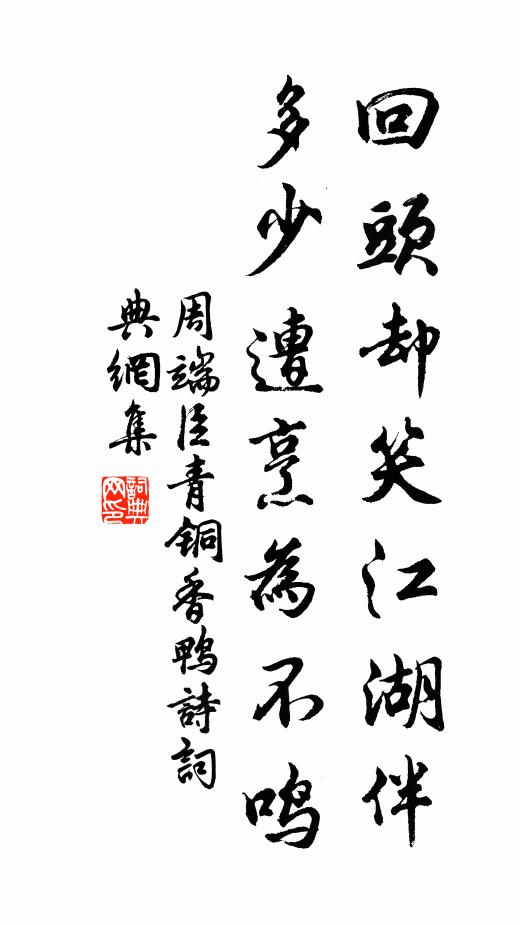 回頭却笑江湖伴
多少遭烹為不鳴
周端臣青铜香鸭詩詞
典網集
詞典网印